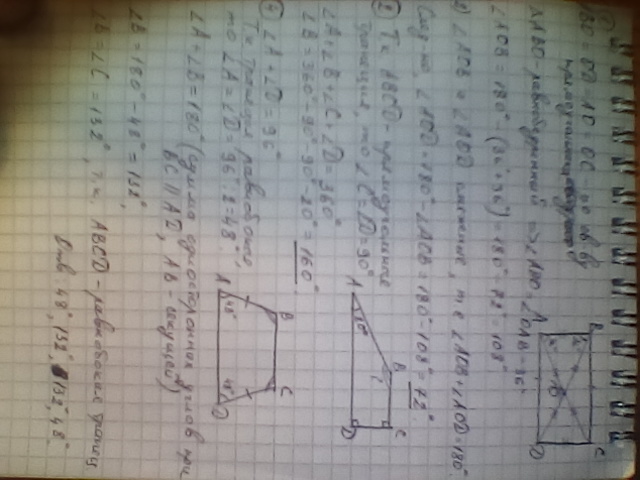 ①
BO = OD = AO = OC, по св-ву
прямоугольника
ΔABO - равнобедренный => ∠ABO = ∠OAB = 36°
∠AOB = 180° - (36° + 36°) = 180° - 72° = 108°
∠AOB и ∠AOD смежные, т.е. ∠AOB + ∠AOD = 180°.
След-но, ∠AOD = 180° - ∠AOB = 180° - 108° = 72°
② Т.к. ABCD - прямоугольная
трапеция, то ∠C = ∠D = 90°
∠A + ∠B + ∠C + ∠D = 360°
∠B = 360° - 90° - 90° - 20° = 160°
④ ∠A + ∠D = 96°
Т.к. трапеция равнобокая,
то ∠A = ∠D = 96° : 2 = 48°.
∠A + ∠B = 180° (сумма односторонних углов при
BC || AD, AB - секущей)
∠B = 180° - 48° = 132°,
∠B = ∠C = 132°, т.к. ABCD - равнобокая трапец
Отв: 48°, 132°, 132°, 48°.
A B C D O
A B C D 20°
A B C D 48° 48°